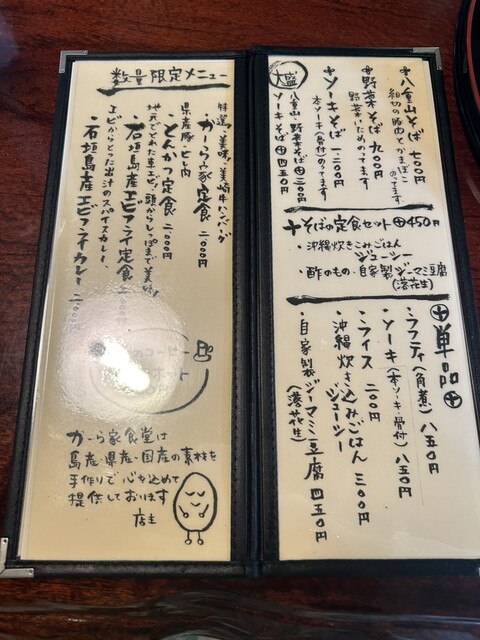 十八重山そば 七〇〇円
細切の豚肉とかまぼこ
のってます
十野菜そば 九〇〇円
野菜いためのってます
十ソーキそば 一二〇〇円
本ソーキ(骨付)のってます
大盛
八重山・野菜そば ⊕二〇〇円
ソーキそば ⊕四五〇円
十そばの定食セット ⊕450円
・沖縄炊きこみごはん
ジューシー
・酢のもの・自家製ジーマミ豆腐
(落花生)
⊕単品⊕
・ラフティ(角煮) 八五〇円
・ソーキ(本ソーキ・骨付) 八五〇円
・ライス 二〇〇円
・沖縄炊き込みごはん 三〇〇円
ジューシー
・自家製ジーマミ豆腐 四五〇円
(落花生)
数量限定メニュー
特選美味美崎牛ハンバーグ
・がーらぅ家定食 二、〇〇〇円
県産豚ヒレ肉
・とんかつ定食 二、〇〇〇円
地元でとれた車エビ、頭からしっぽまで美味
・石垣島産エビフライ定食 二、〇〇〇円
エビからとった出汁のスパイスカレー、
・石垣島産エビフライカレー 二、〇〇〇円
コーヒー
ホット
がーら家食堂は
島産・県産・国産の素材を
手作りで心を込めて
提供しております
店主